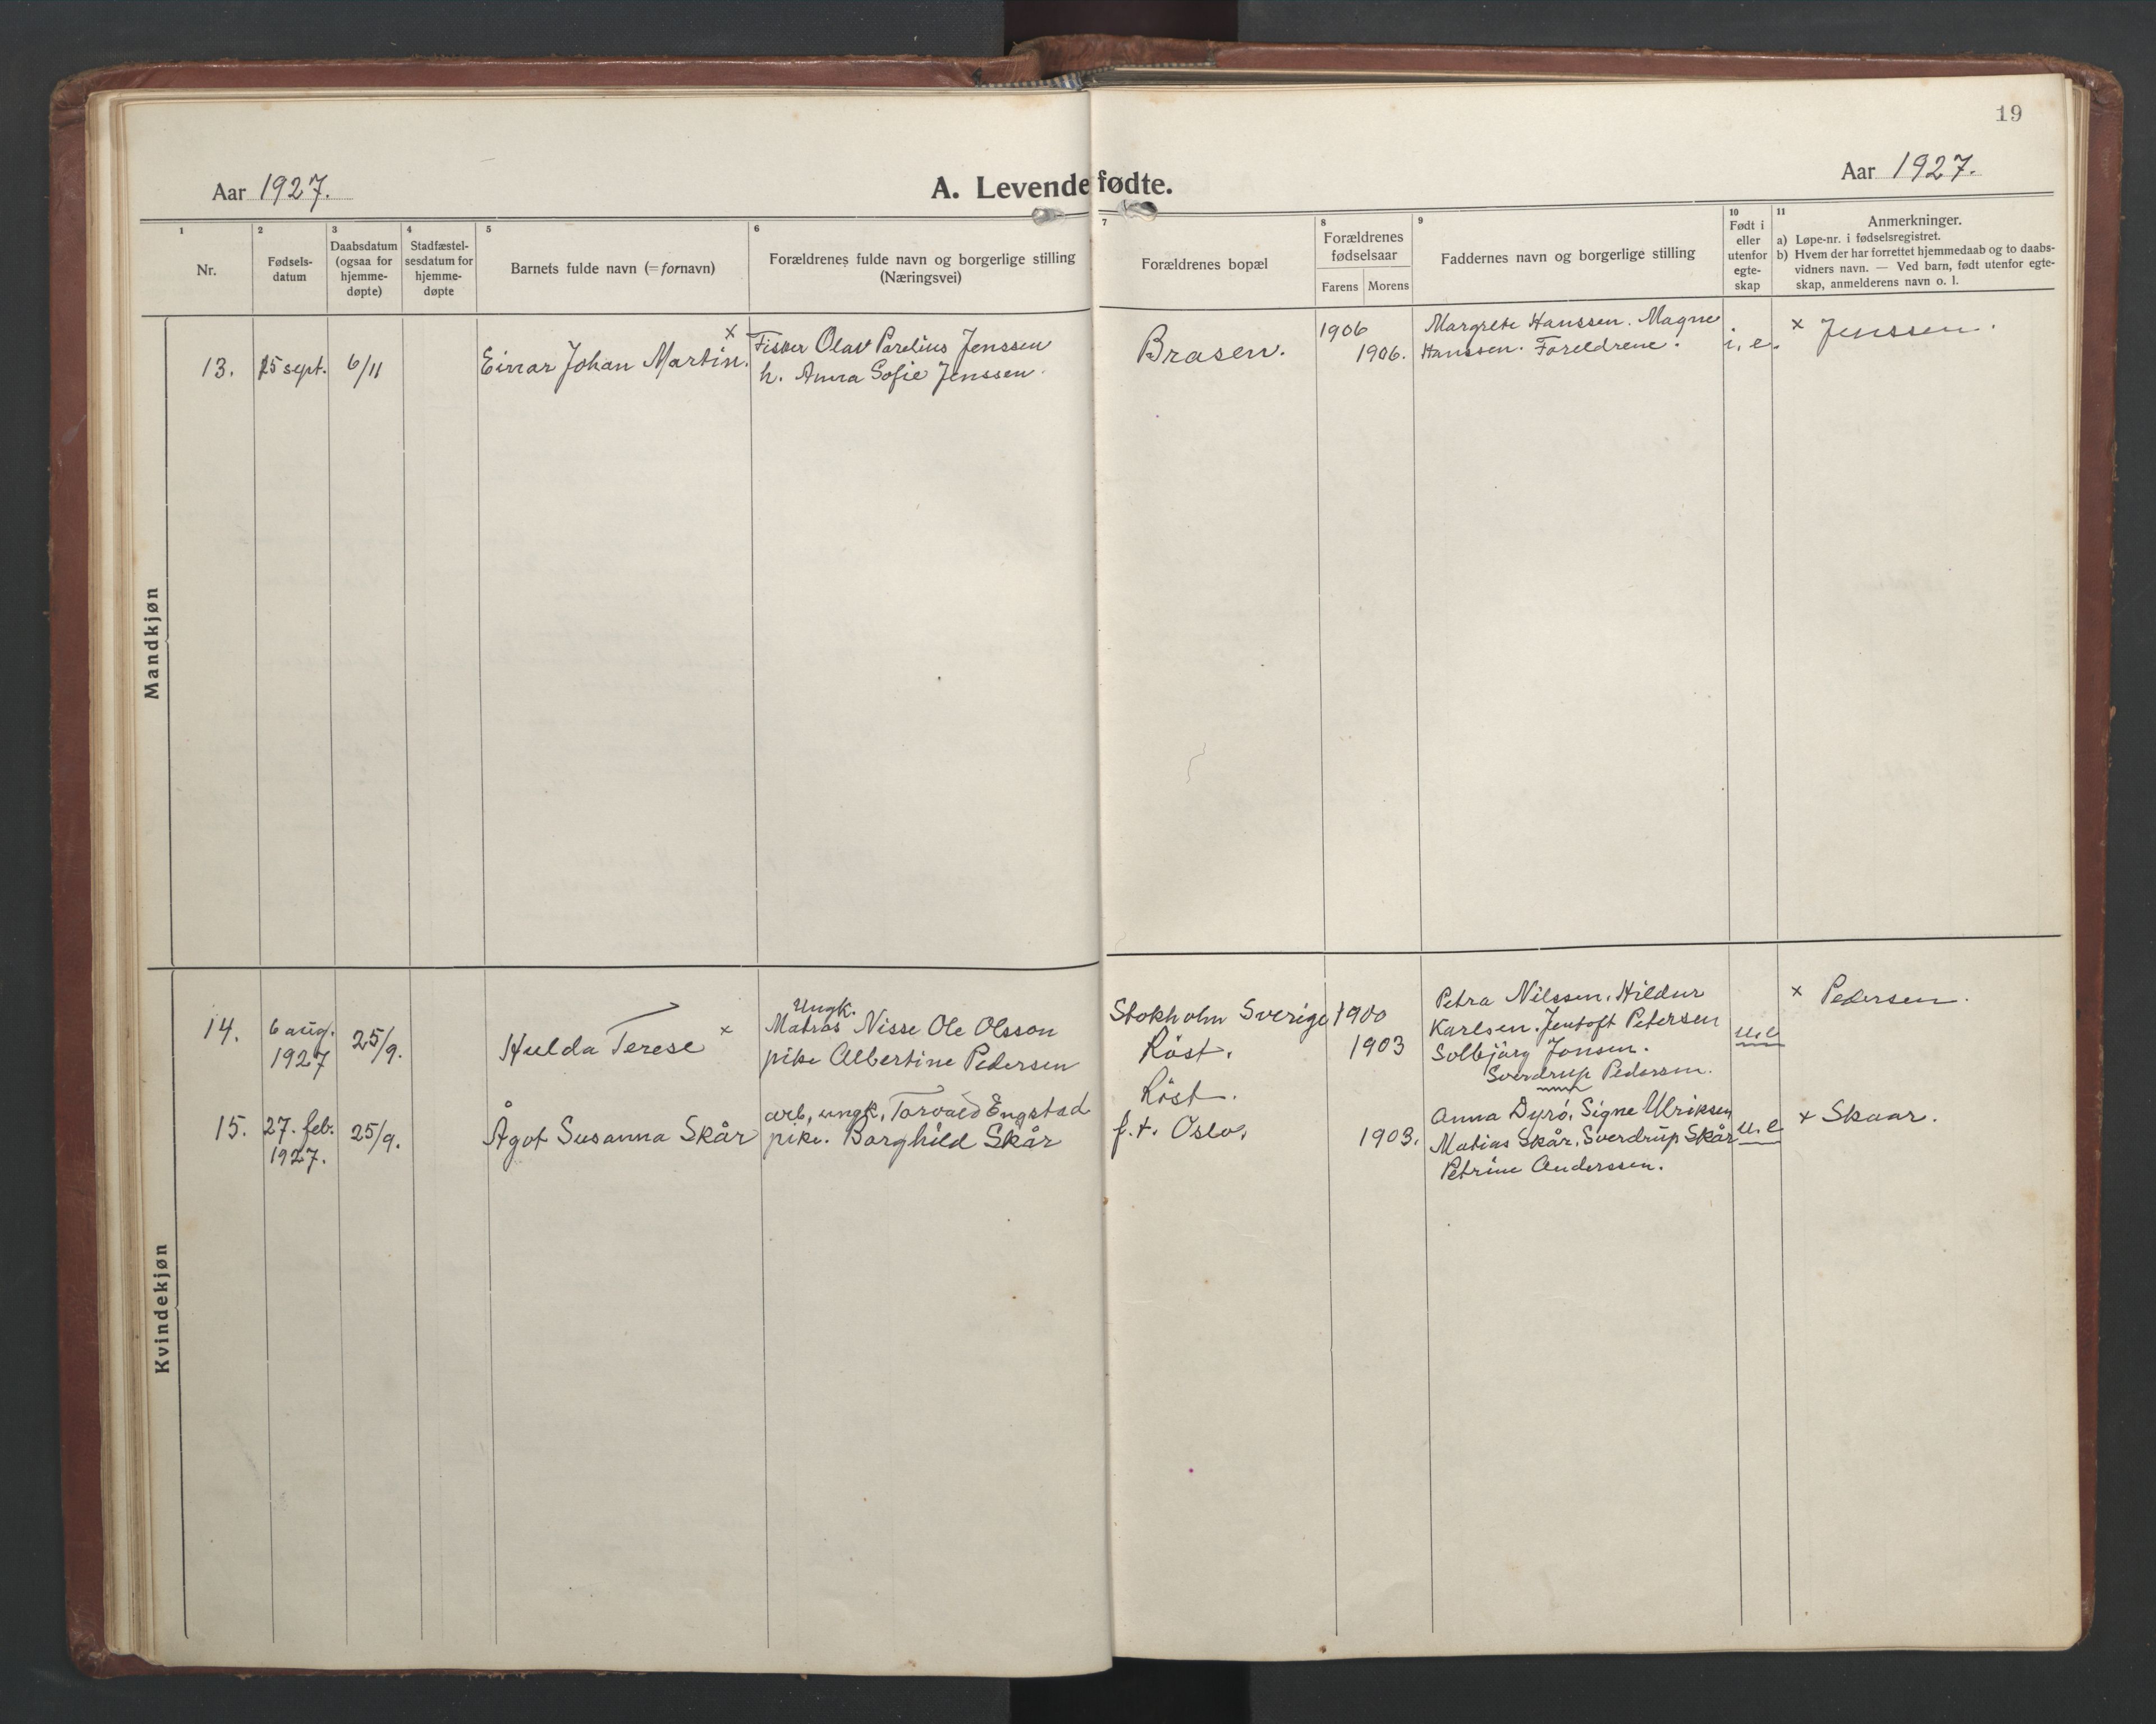 19
Aar 1927.
A. Levendefødte.
Aar 1927.
1 2 3 4 5 6 7 8 9 10 11
Nr.
Fødsels-
datum
Daabsdatum
(ogsaa for
hjemme-
døpte)
Stadfæstel-
sesdatum for
hjemme-
døpte
Barnets fulde navn (= fornavn)
Forældrenes fulde navn og borgerlige stilling
(Næringsvei)
Forældrenes bopæl
Forældrenes
fødselsaar
Farens Morens
Faddernes navn og borgerlige stilling
Født i
eller
utenfor
egte-
skap
Anmerkninger.
a) Løpe-nr. i fødselsregistret.
b) Hvem der har forrettet hjemmedaab og to daabs-
vidners navn. — Ved barn, født utenfor egte-
skap, anmelderens navn o. l.
Mandkjøn
13.
15 sept.
6/11
Einar Johan Martin. x
Fisker Olav Parelius Jenssen
h. Anna Sofie Jenssen.
Brasen.
1906
1906.
Margrete Hanssen. Magne
Hanssen. Foreldrene.
i. e.
x Jenssen.
Kvindekjøn
14.
6 aug.
1927
25/9.
Hulda Terese x
Ungk.
Matros Nisse Ole Olsson
pike Albertine Pedersen
Stokholm Sverige
Röst.
1900
1903
Petra Nilssen. Hildur
Karlsen. Jentoft Petersen
Solbjörg Jonsen.
Sverdrup Pedersen.
u.e
x Pedersen.
15.
27. feb.
1927.
25/9.
Ågot Susanna Skår
arb, ungk. Torvald Engstad
pike. Borghild Skår
Röst.
f.t. Oslo.
1903.
Anna Dyrö. Signe Ulriksen
Matias Skår. Sverdrup Skår
Petrine Anderssen.
u.e
x Skaar.